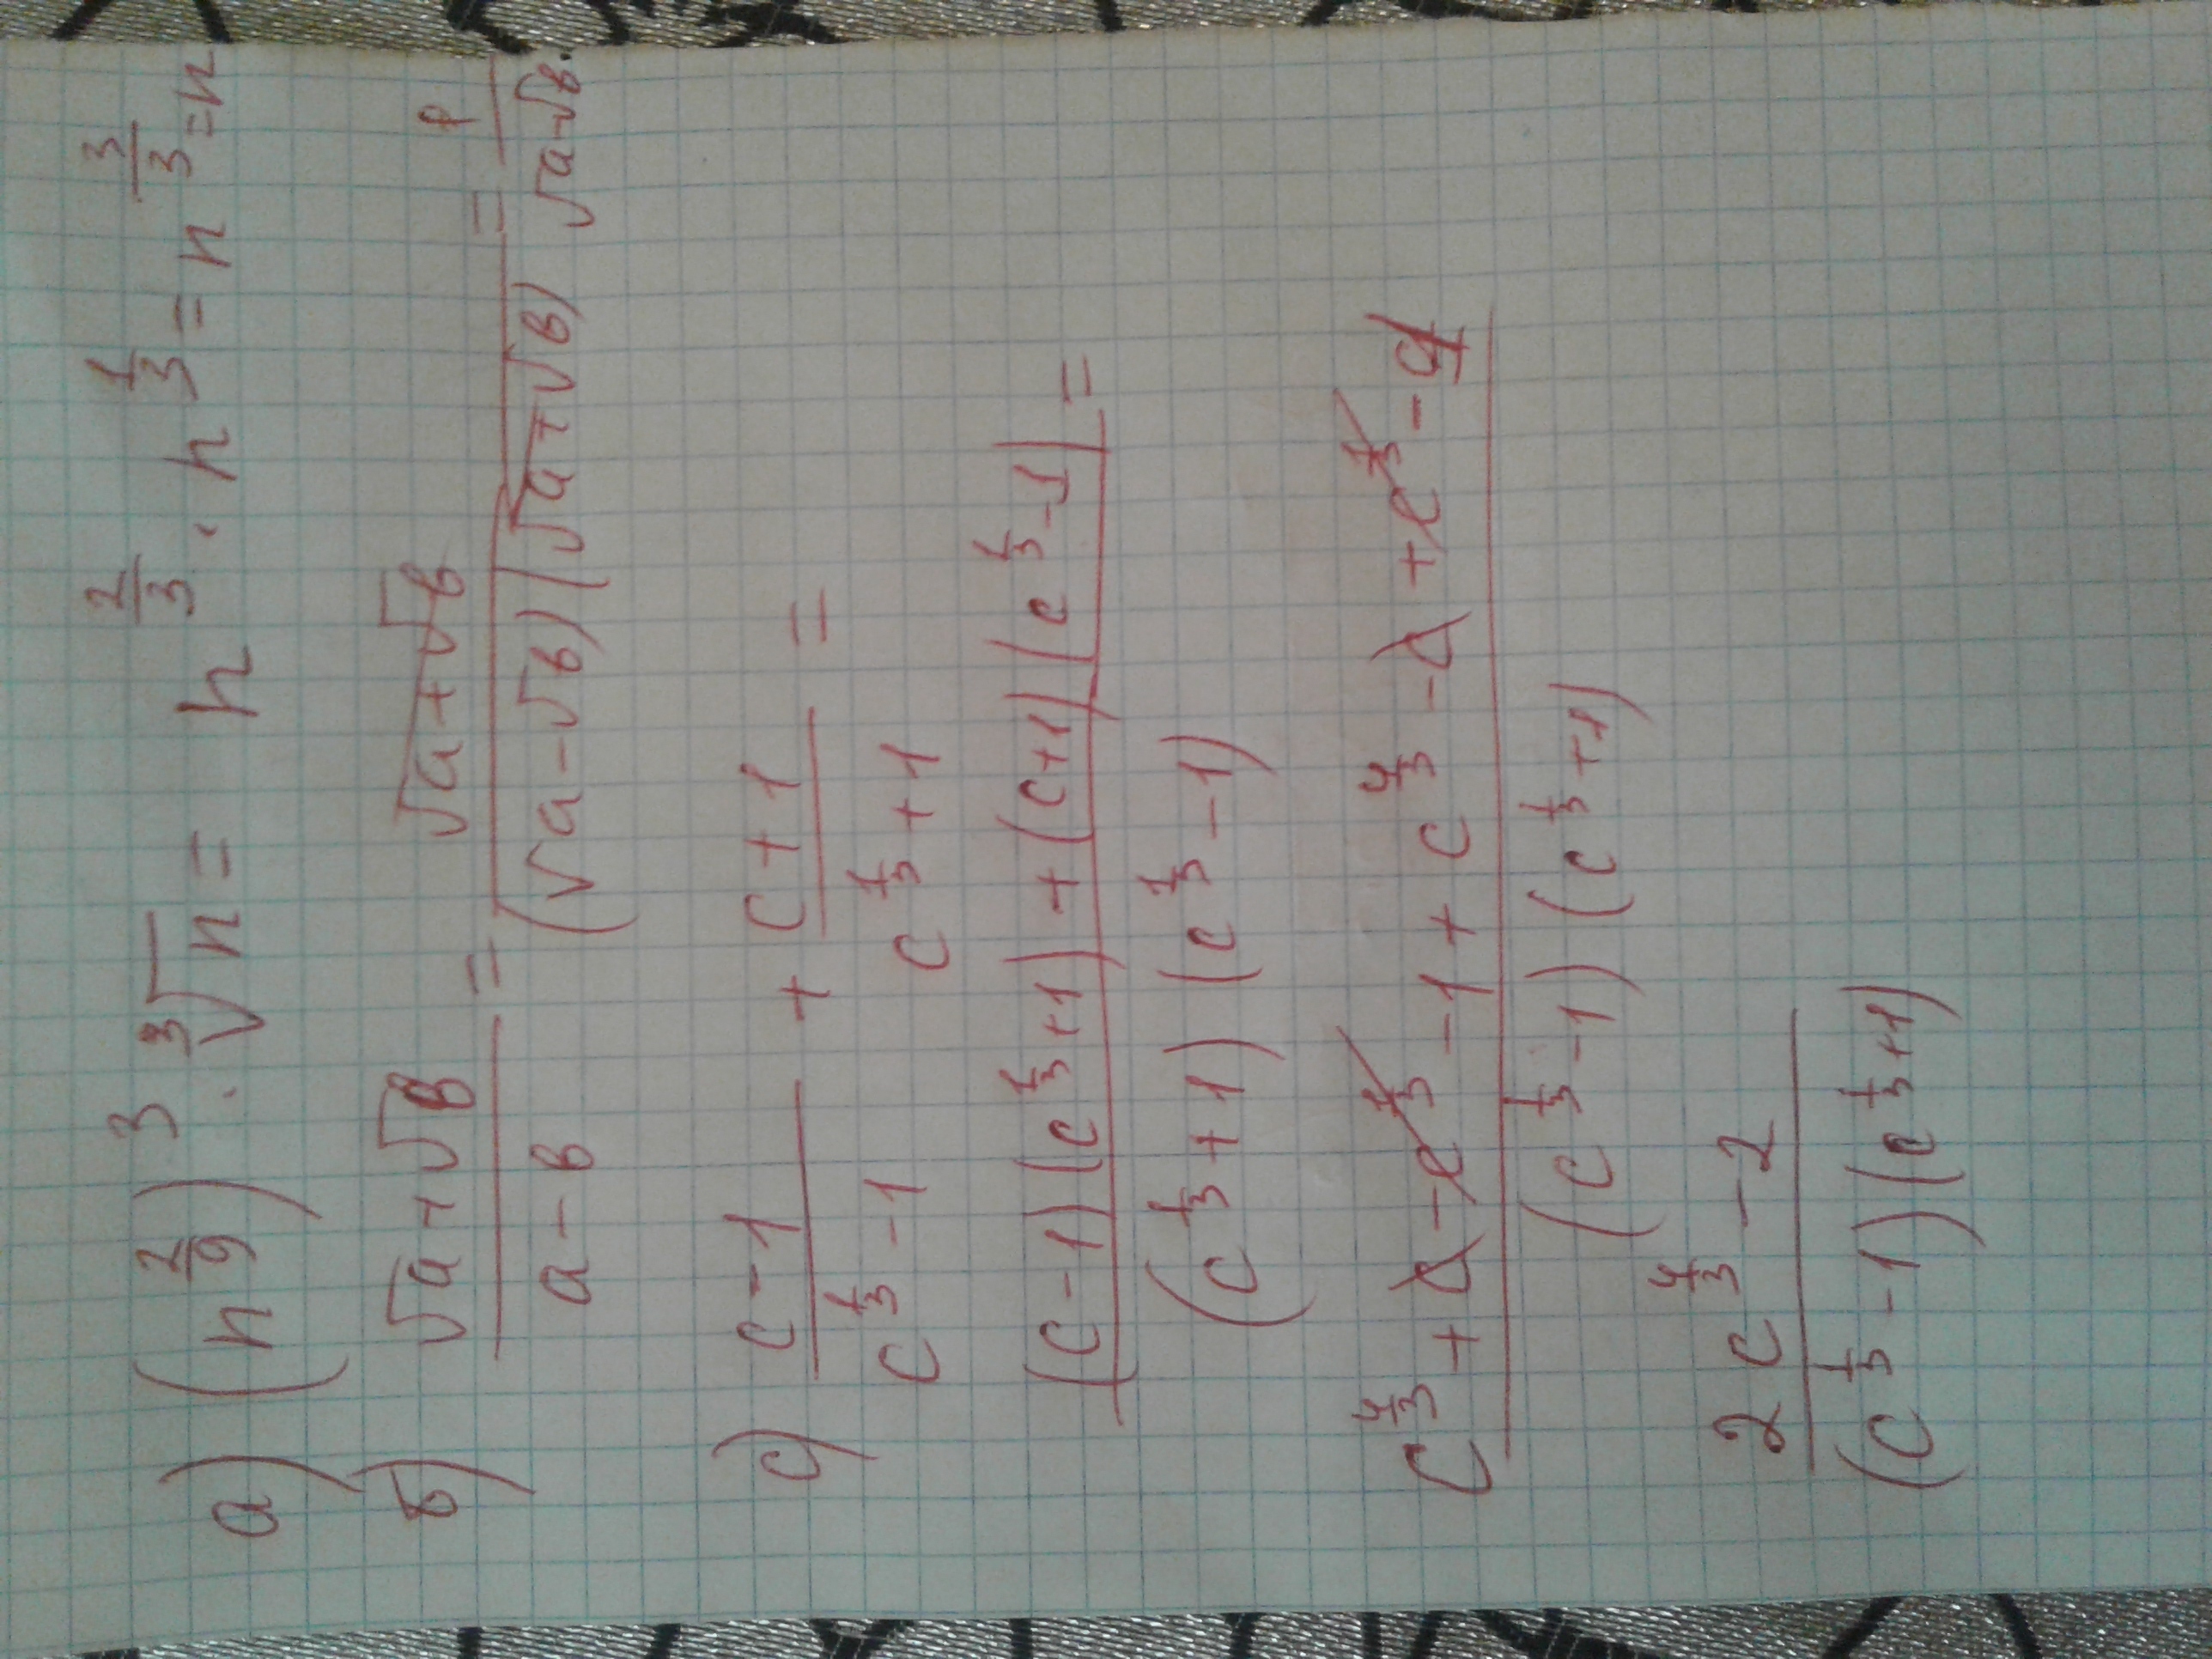 а) (n^(2/9))^3 · ∛n = n^(2/3) · n^(1/3) = n^(3/3) = n
б) (√a+√в)/(a-в) = (√a+√в)/((√a-√в)(√a+√в)) = 1/(√a-√в).
с) (c-1)/(c^(1/3)-1) + (c+1)/(c^(1/3)+1) =
((c-1)(c^(1/3)+1)+(c+1)(c^(1/3)-1))/((c^(1/3)+1)(c^(1/3)-1)) =
(c^(4/3)+c-c^(1/3)-1+c^(4/3)-c+c^(1/3)-1)/((c^(1/3)-1)(c^(1/3)+1))
(2c^(4/3)-2)/((c^(1/3)-1)(c^(1/3)+1))